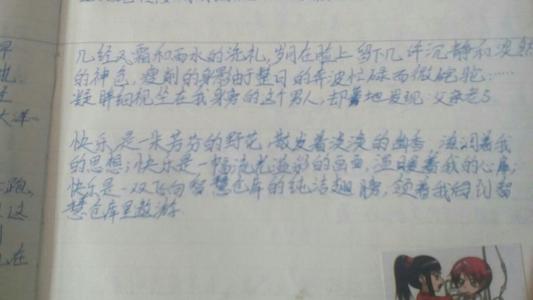 几经风霜和雨水的洗礼,岁月在脸上留下几许沉静和淡然
的神色,瘦削的身影由于整日的奔波忙碌而微微驼……
凝眸细视坐在我身旁的这个男人,却蓦地发现:父亲老了
快乐是一朵芳芬的野花,散发着淡淡的幽香,滋润着我
的思想;快乐是一幅流光溢彩的画面,温暖着我的心扉;
快乐是一双飞向智慧仓库的纯洁翅膀,领着我回到智
慧仓库里敖游.
大洋.
跑,
这
在